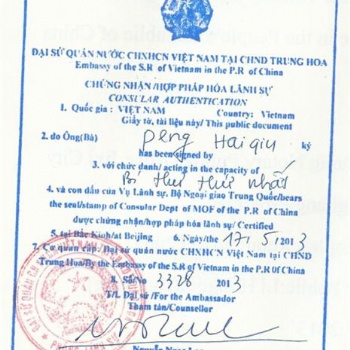 ĐẠI SỨ QUÁN NƯỚC CHXHCN VIỆT NAM TẠI CHND TRUNG HOA
Embassy of the S.R of Vietnam in the P.R of China
CHỨNG NHẬN/HỢP PHÁP HÓA LÃNH SỰ
CONSULAR AUTHENTICATION
1. Quốc gia: VIỆT NAM Country: Vietnam
Giấy tờ, tài liệu này/ This public document
2. do Ông(Bà) Peng Haiqiu ký
has been signed by
3. với chức danh/ acting in the capacity of
Bí thư thứ nhất
4. và con dấu của Vụ Lãnh sự, Bộ Ngoại giao Trung Quốc/bears
the seal/stamp of Consular Dept of MOF of the P.R of China
được chứng nhận/hợp pháp hóa lãnh sự/ Certified
5. tại Bắc Kinh/at Beijing 6. Ngày/the 17/ 5/2013
7. Cơ quan cấp: Đại sứ quán nước CHXHCN Việt Nam tại CHND
Trung Hoa/By the Embassy of the S.R of Vietnam in the P.R Of China
8. Số/No 3328 2013
T/L Đại sứ/For the Ambassador
Tham tán/Counsellor